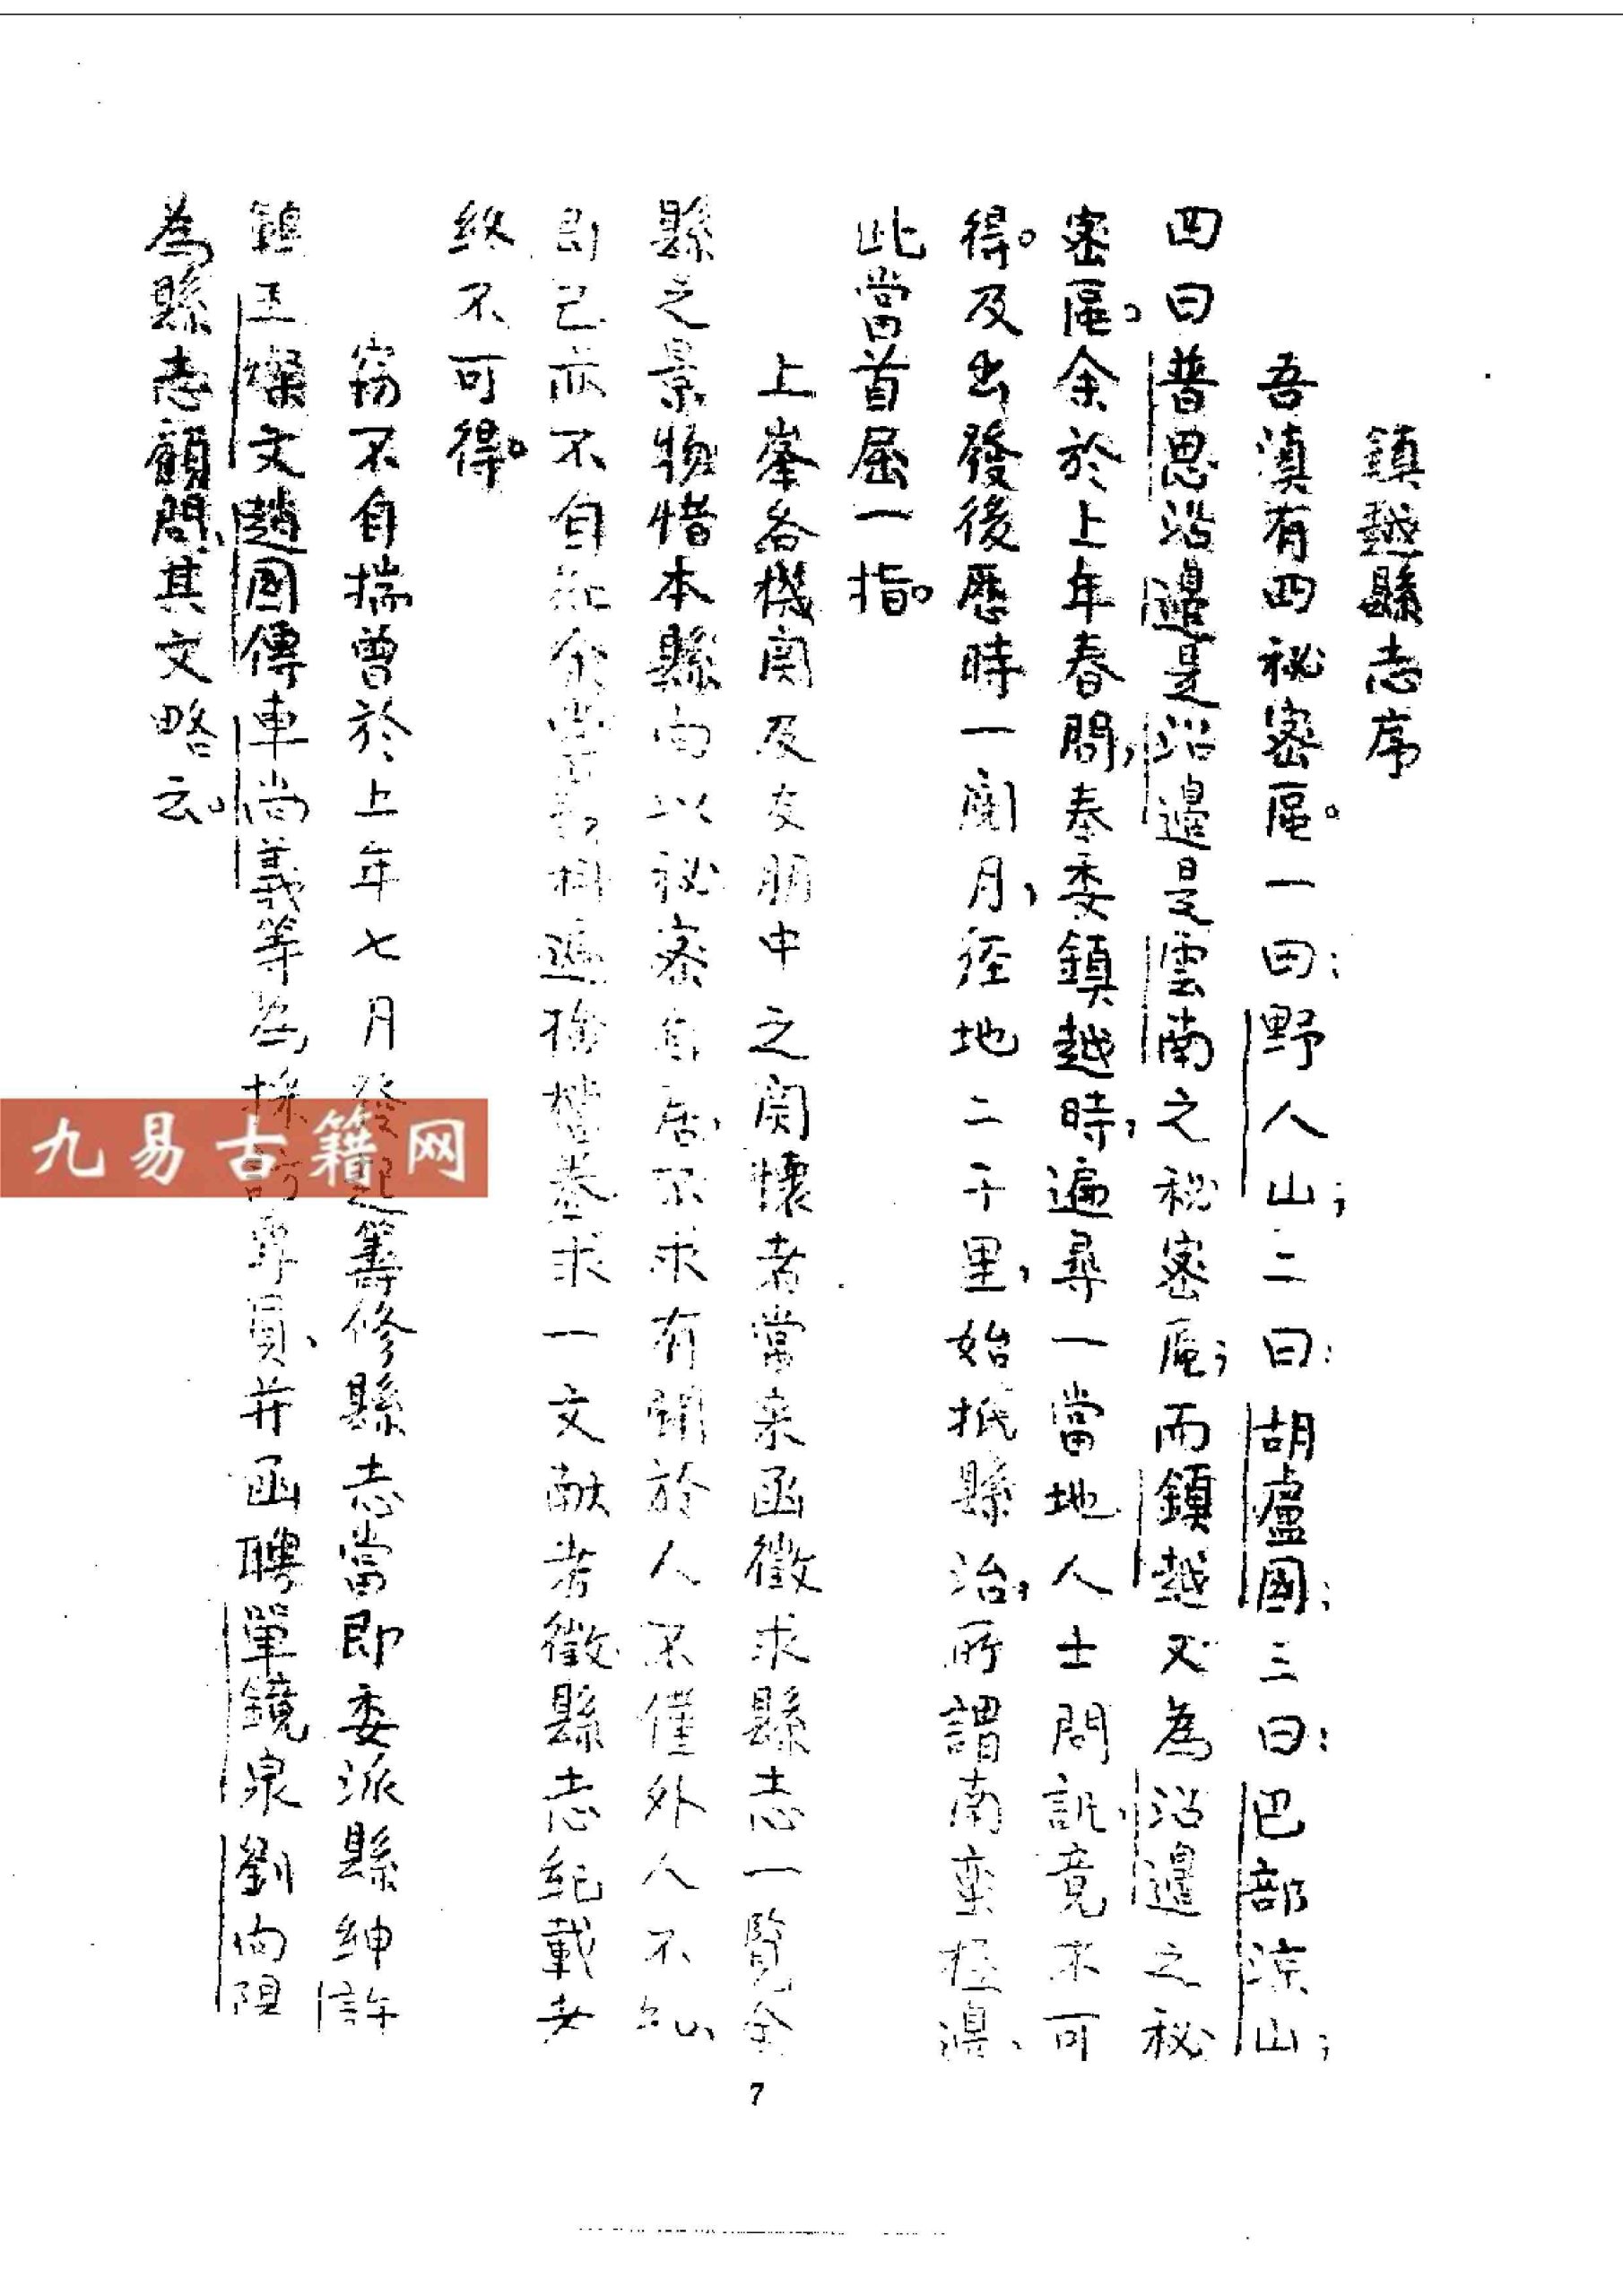 鎮越縣志序
吾滇有四秘密區。一曰：野人山；二曰：胡盧國；三曰：巴部涼山；
四曰普思沿邊是沿邊是雲南之秘密區；而鎮越又為沿邊之秘
密區。余於上年春間，奉委鎮越時，遍尋一當地人士問訊，竟不可
得。及出發後歷時一閱月，徑地二千里，始抵縣治，所謂南蛮極邊、
此當首屈一指。
上峯各機関及友朋中之関懷者常来函徵求縣志一覧全
縣之景物惜本縣向以秘密自居，不求有聞於人不僅外人不知、
即己亦不自知余當
一文献考徵縣志紀載者
終不可得。
竊不自揣曾於上年七月發起籌修縣志當即委派縣紳許
鏡玉燦文趙國傳車尚義等為採訪專員、并函聘單鏡泉劉向陽
為縣志顧問、其文略云。
九易古籍网
7